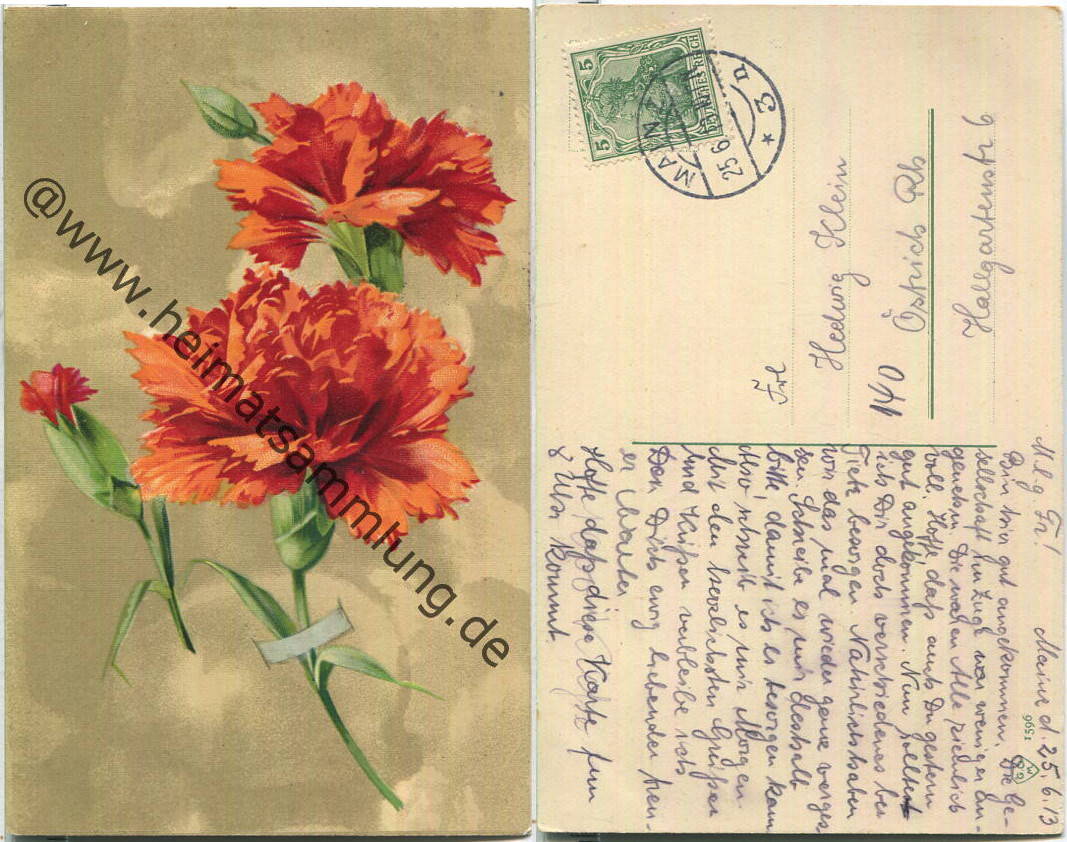 @www.heimatsammlung.de
5 5
DEUTSCHES REICH
MAINZ
25 6
* 3 n
Frl
Hedwig Klein
Östrich Rh
Hallgartenstr 6
1596
Mainz d. 25.6.13
M. lg Fr!
Bin hir gut angekommen. Die Ge-
sellschaft im Zuge war weniger an-
genehm. Die waren Alle ziemlich
voll. Hoffe daß auch Du gestern
gut angekommen. Nun solltest
ich Dir doch verschiedenes bei
Tietz besorgen. Natürlich haben
wir das mal wieder ganz verges
sen. Schreibe es mir deshalb
bitte, damit ich es besorgen kann
Also schreib es mir Morgen.
Mit den herzlichsten Grüßen
und Küssen verbleibe ich
Dein Dich ewig liebender treu-
er Walter
Hoffe daß diese Karte zum
8 Uhr kommt.